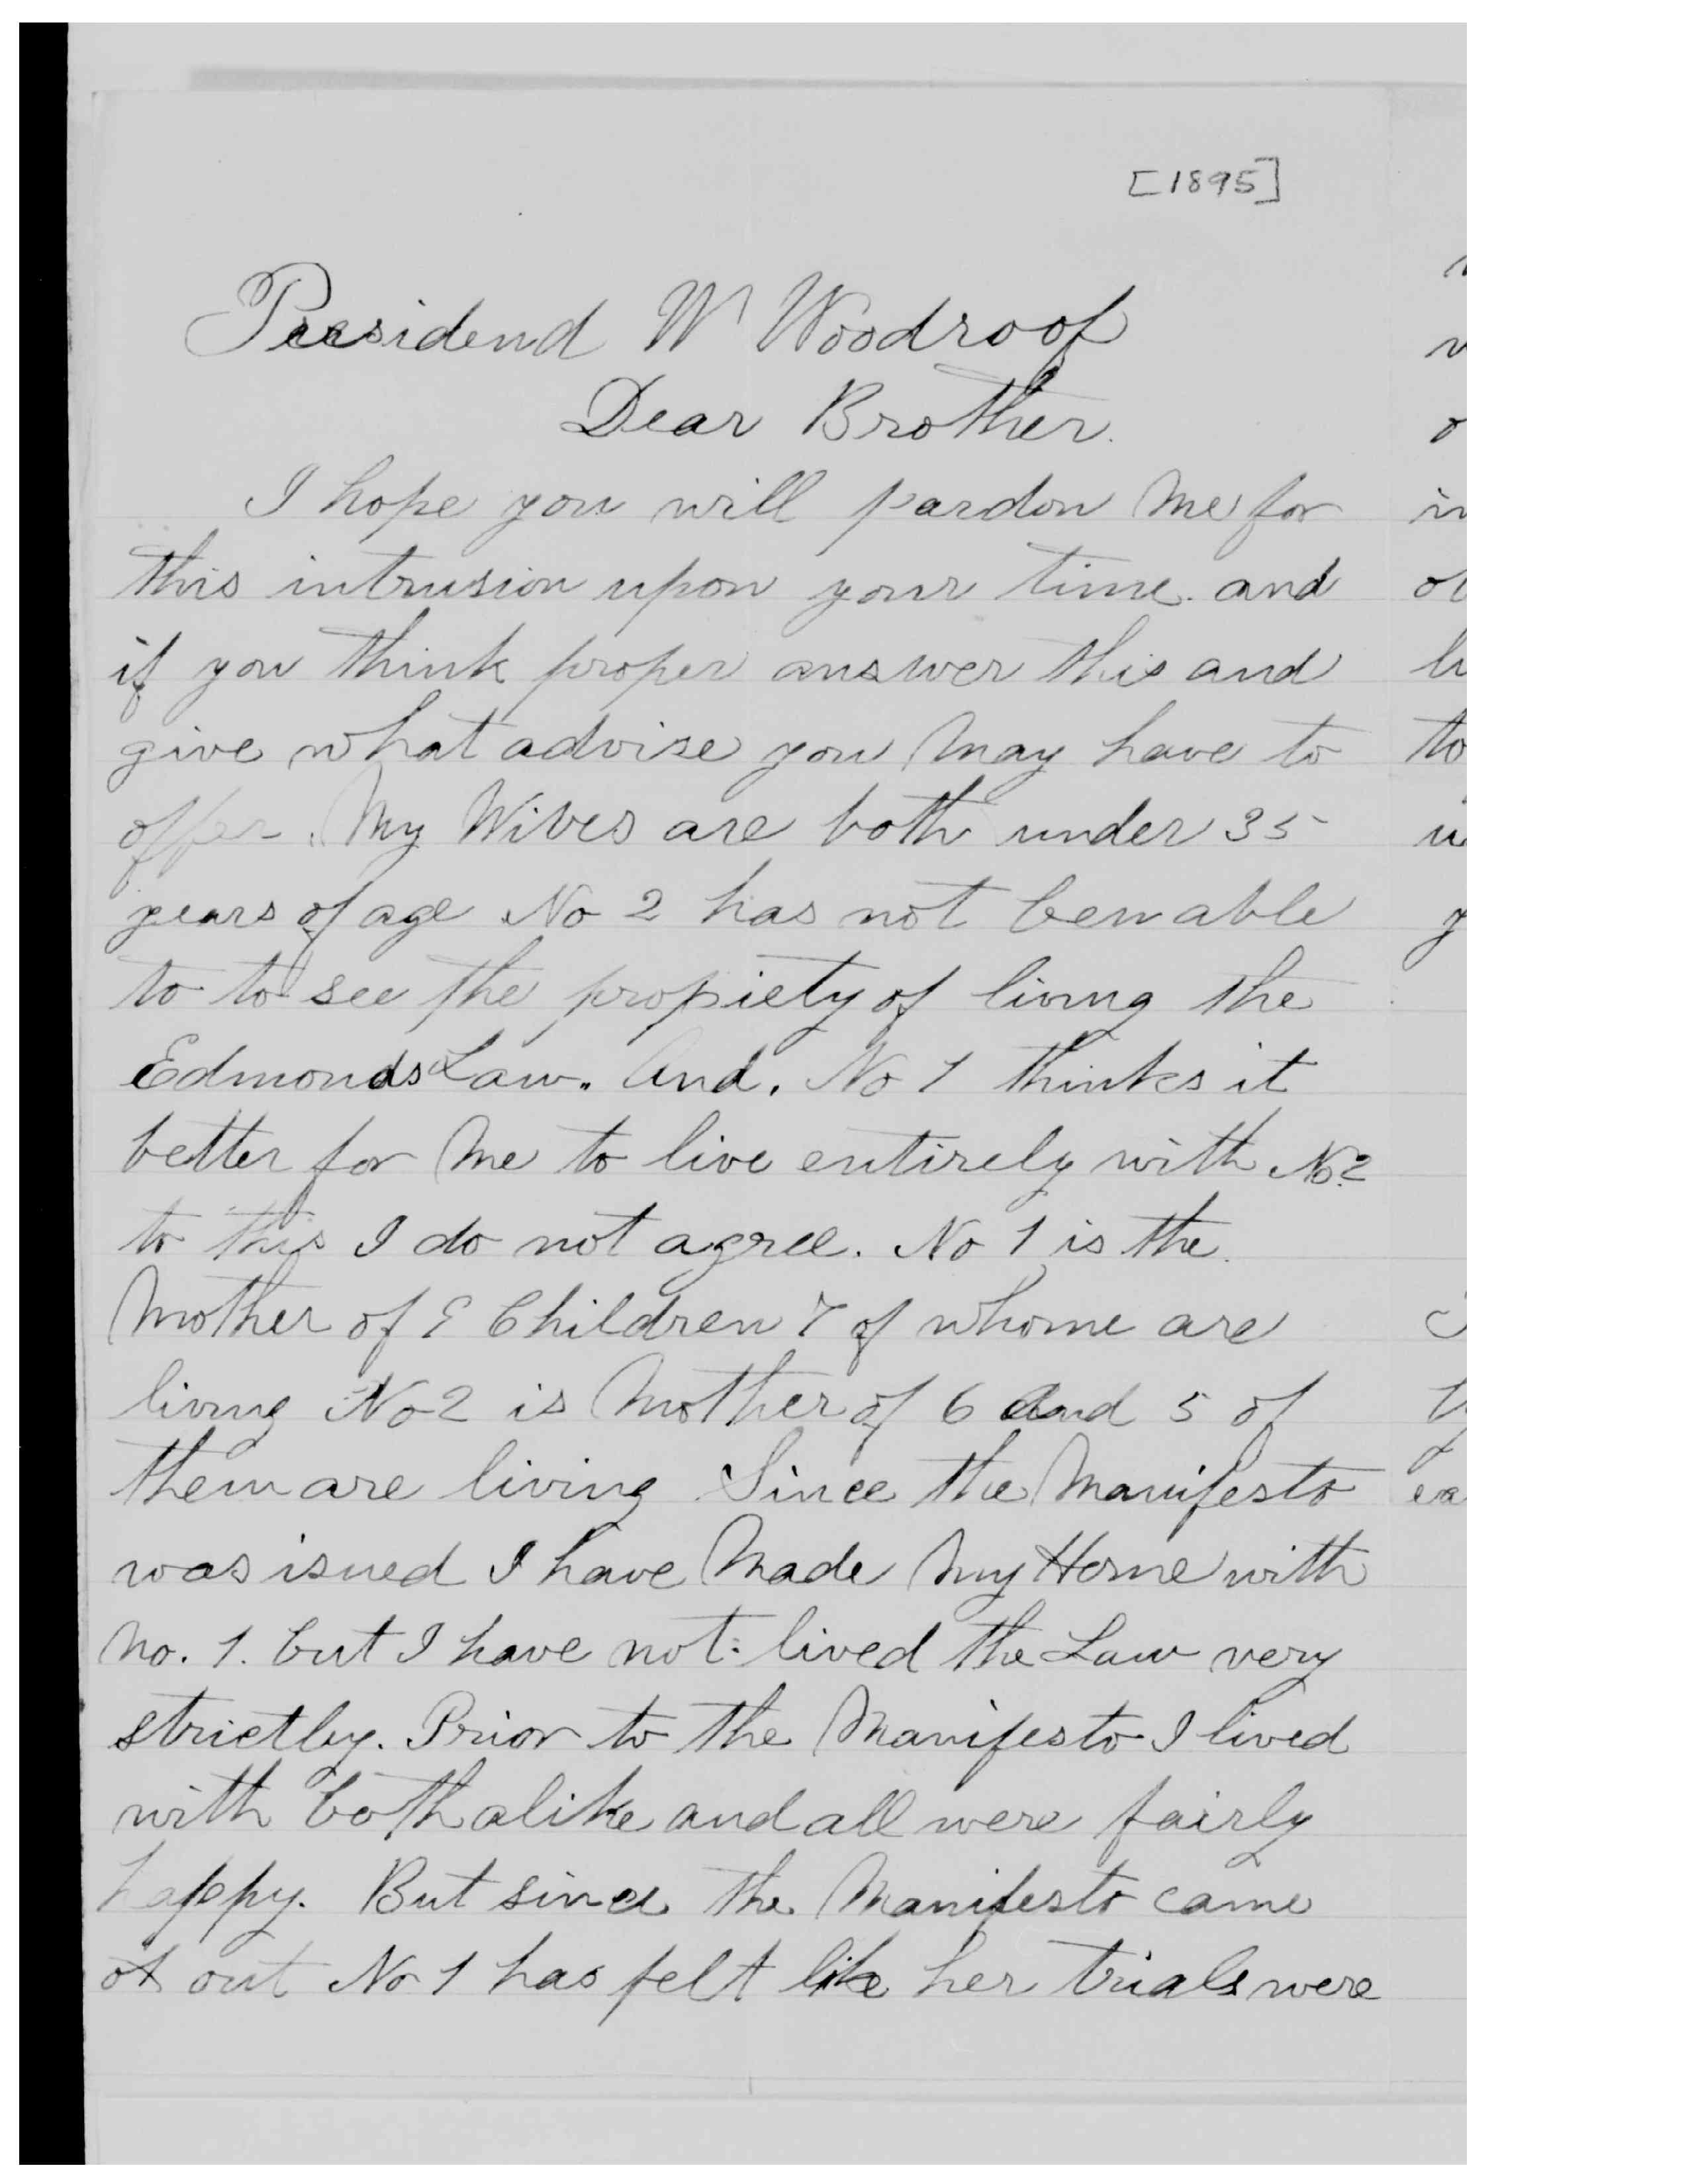 [1895]
Presidend W Woodroof
Dear Brother.
I hope you will pardon Me for
this intrusion upon your time. and
if you think proper answer this and
give what advise you May have to
offer. My Wives are both under 35
years of age No 2 has not ben able
to to see the propiety of living the
Edmonds Law. And. No 1 thinks it
better for Me to live entirely with No. 2
to this I do not agree. No 1 is the.
Mother of Children 7 of whome are
living No 2 is Mother of 6 and 5 of
them are living Since the Manifesto
was isued I have Made My Home with
No. 1. but I have not lived the Law very
strictley. Prior to the Manifesto I lived
with both alike and all were fairly
happy. But since the Manifesto came
out No 1 has felt like her trials were